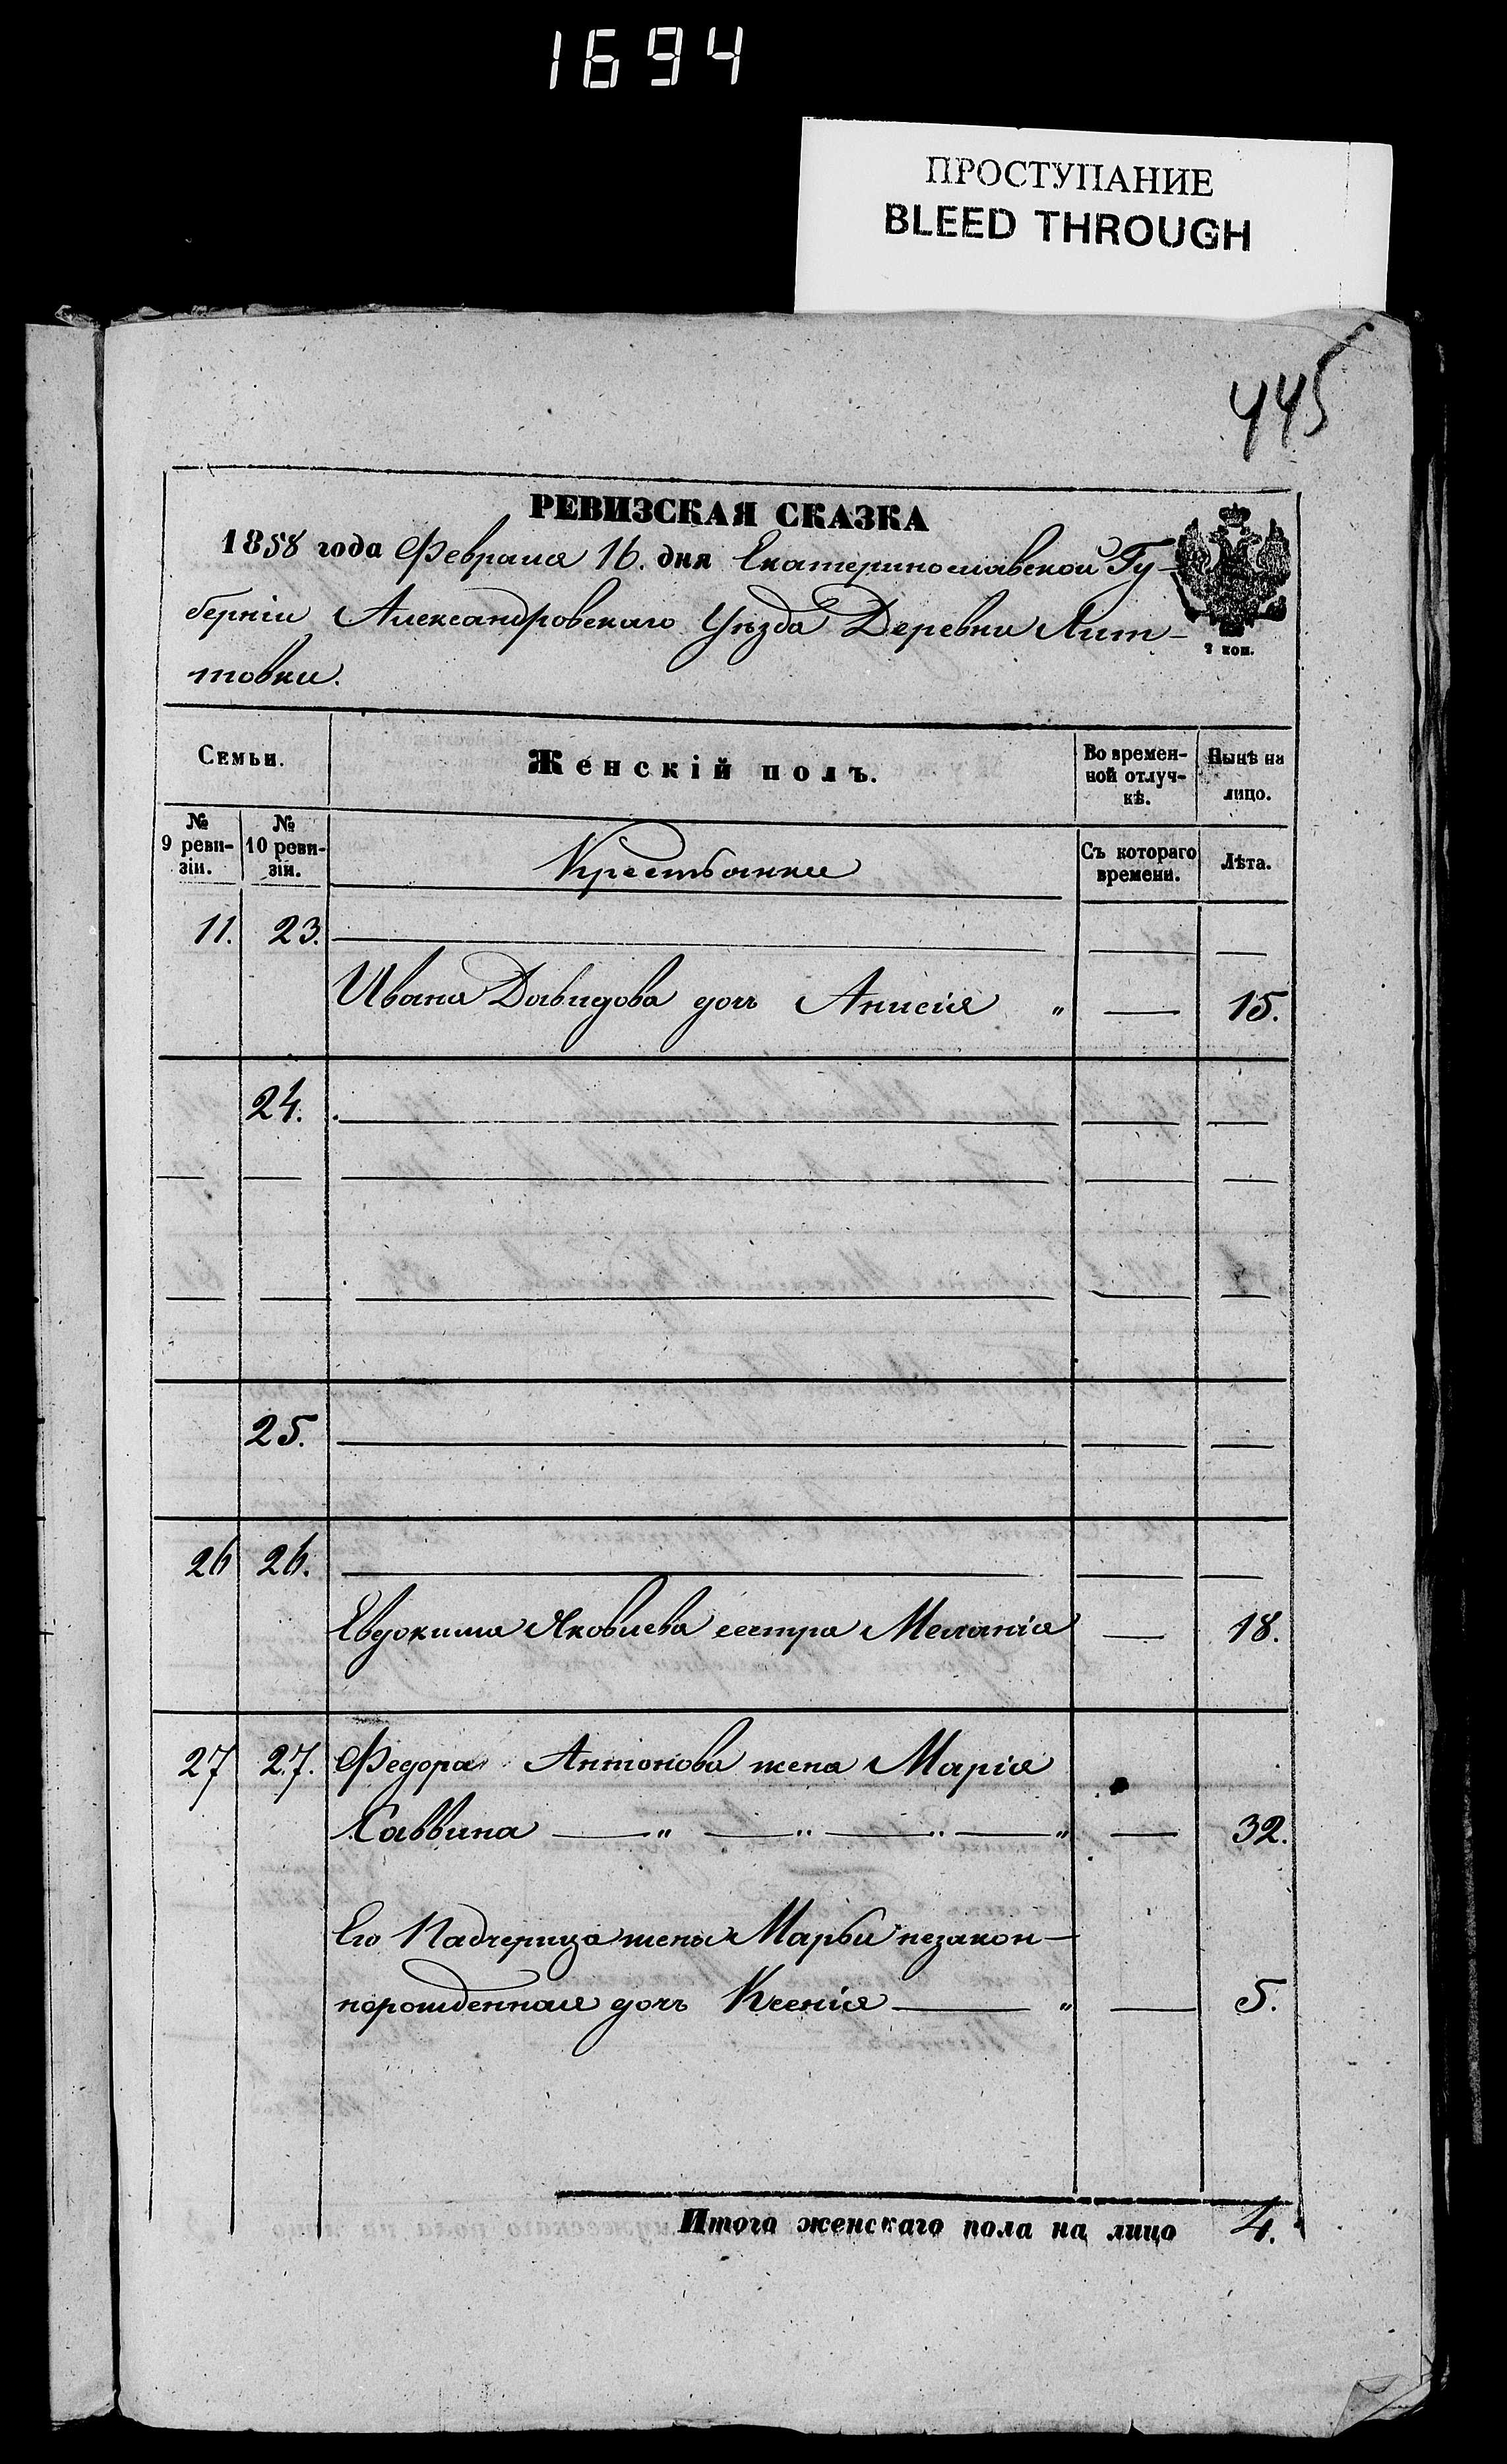 1694
ПРОСТУПАНИЕ
BLEED THROUGH
445
РЕВИЗСКАЯ СКАЗКА
1858 года Февраля 16. дня Екатеринославской Гу-
берніи Александровскаго Уѣзда Деревни Лит-
товки.
2 коп.
Семьи. Женскій полъ. Во времен- Нынѣ на
ной отлуч- лицо.
кѣ.
№ №
9 реви- 10 реви- Крестьянки Съ котораго Лѣта.
зіи. зіи. времени.
11. 23.
Ивана Давидова дочь Анисія " — 15.
24.
25.
26 26.
Евдокима Яковлева сестра Меланія — 18.
27 27. Федора Антонова жена Марія
Саввина — " — " — " — " — 32.
Его Падчерица жены Марьи незакон-
норожденная дочь Ксенія — " — 5.
Итого женскаго пола на лицо 4.